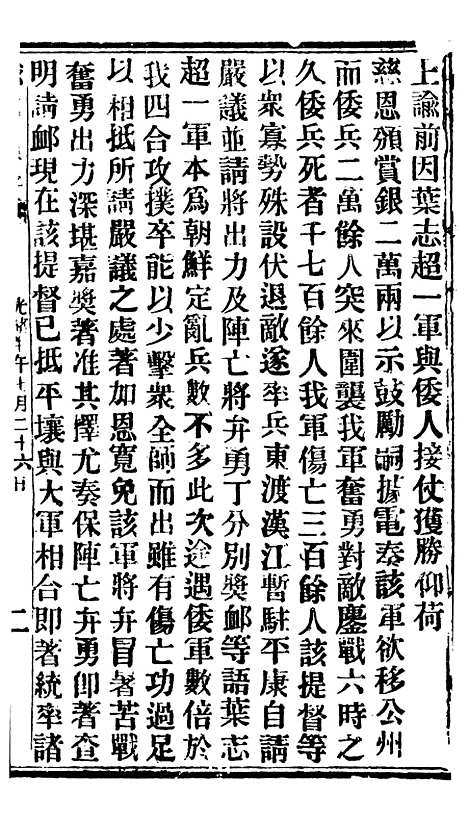 上諭前因葉志超一軍與倭人接仗獲勝仰荷
慈恩頒賞銀二萬兩以示鼓勵嗣據電奏該軍欲移公州
而倭兵二萬餘人突來圍襲我軍奮勇對敵鏖戰六時之
久倭兵死者千七百餘人我軍傷亡三百餘人該提督等
以眾寡勢殊設伏退敵遂率兵東渡漢江暫駐平康自請
嚴議並請將出力及陣亡將弁勇丁分別獎䘏等語葉志
超一軍本爲朝鮮定亂兵數不多此次途遇倭軍數倍於
我四合攻撲卒能以少擊眾全師而出雖有傷亡功過足
以相抵所請嚴議之處著加恩寬免該軍將弁冒暑苦戰
奮勇出力深堪嘉獎著准其擇尤奏保陣亡弁勇卽著查
明請䘏現在該提督已抵平壤與大軍相合卽著統率諸
午七月二十六日
二